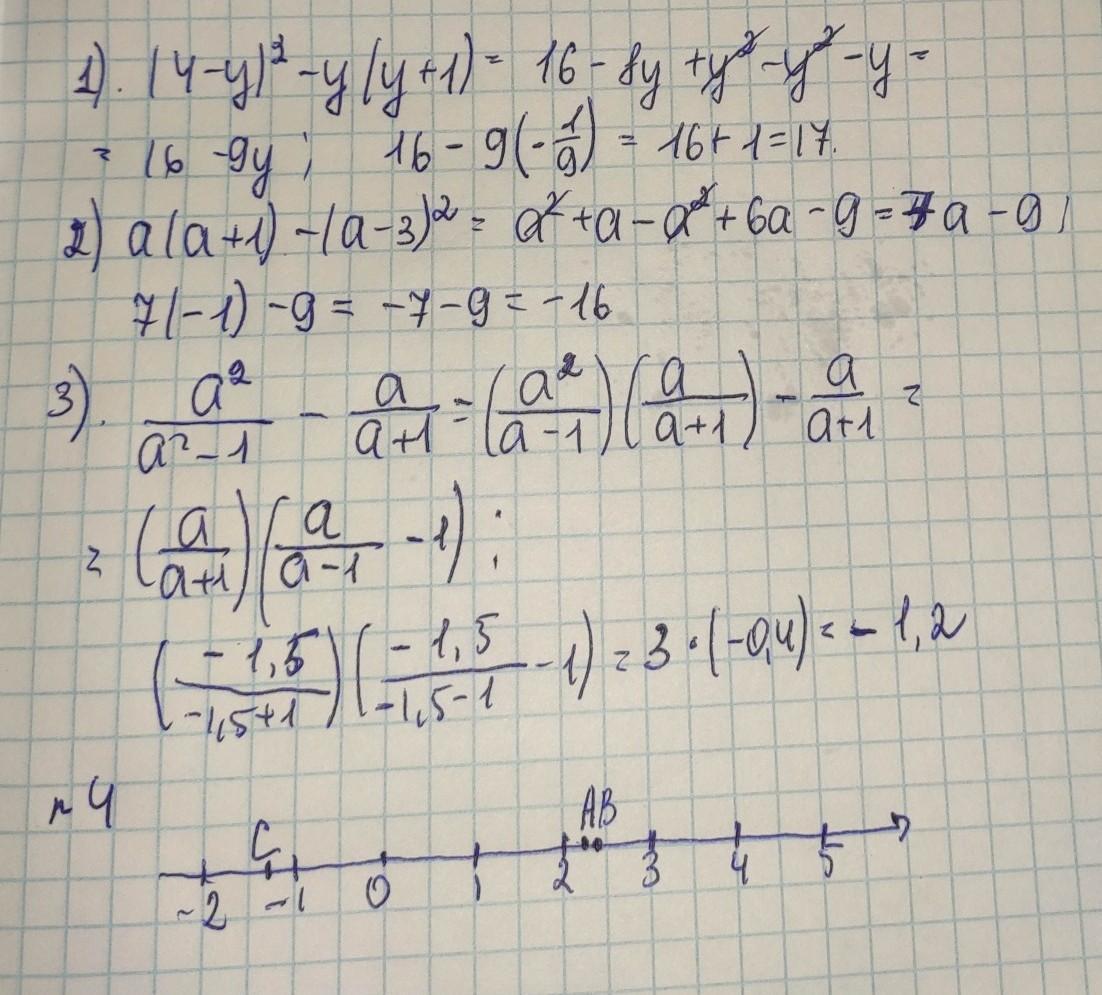 1). (4-y)² - y(y+1) = 16 - 8y + y² - y² - y =
= 16 - 9y ; 16 - 9(-1/9) = 16 + 1 = 17.
2) a(a+1) - (a-3)² = a² + a - a² + 6a - 9 = 7a - 9 ;
7(-1) - 9 = -7 - 9 = -16
3). a²/(a²-1) - a/(a+1) = (a²/(a-1))(a/(a+1)) - a/(a+1) =
= (a/(a+1))(a/(a-1) - 1) ;
(-1,5/(-1,5+1))(-1,5/(-1,5-1) - 1) = 3 · (-0,4) = -1,2
n4
C A B
-2 -1 0 1 2 3 4 5